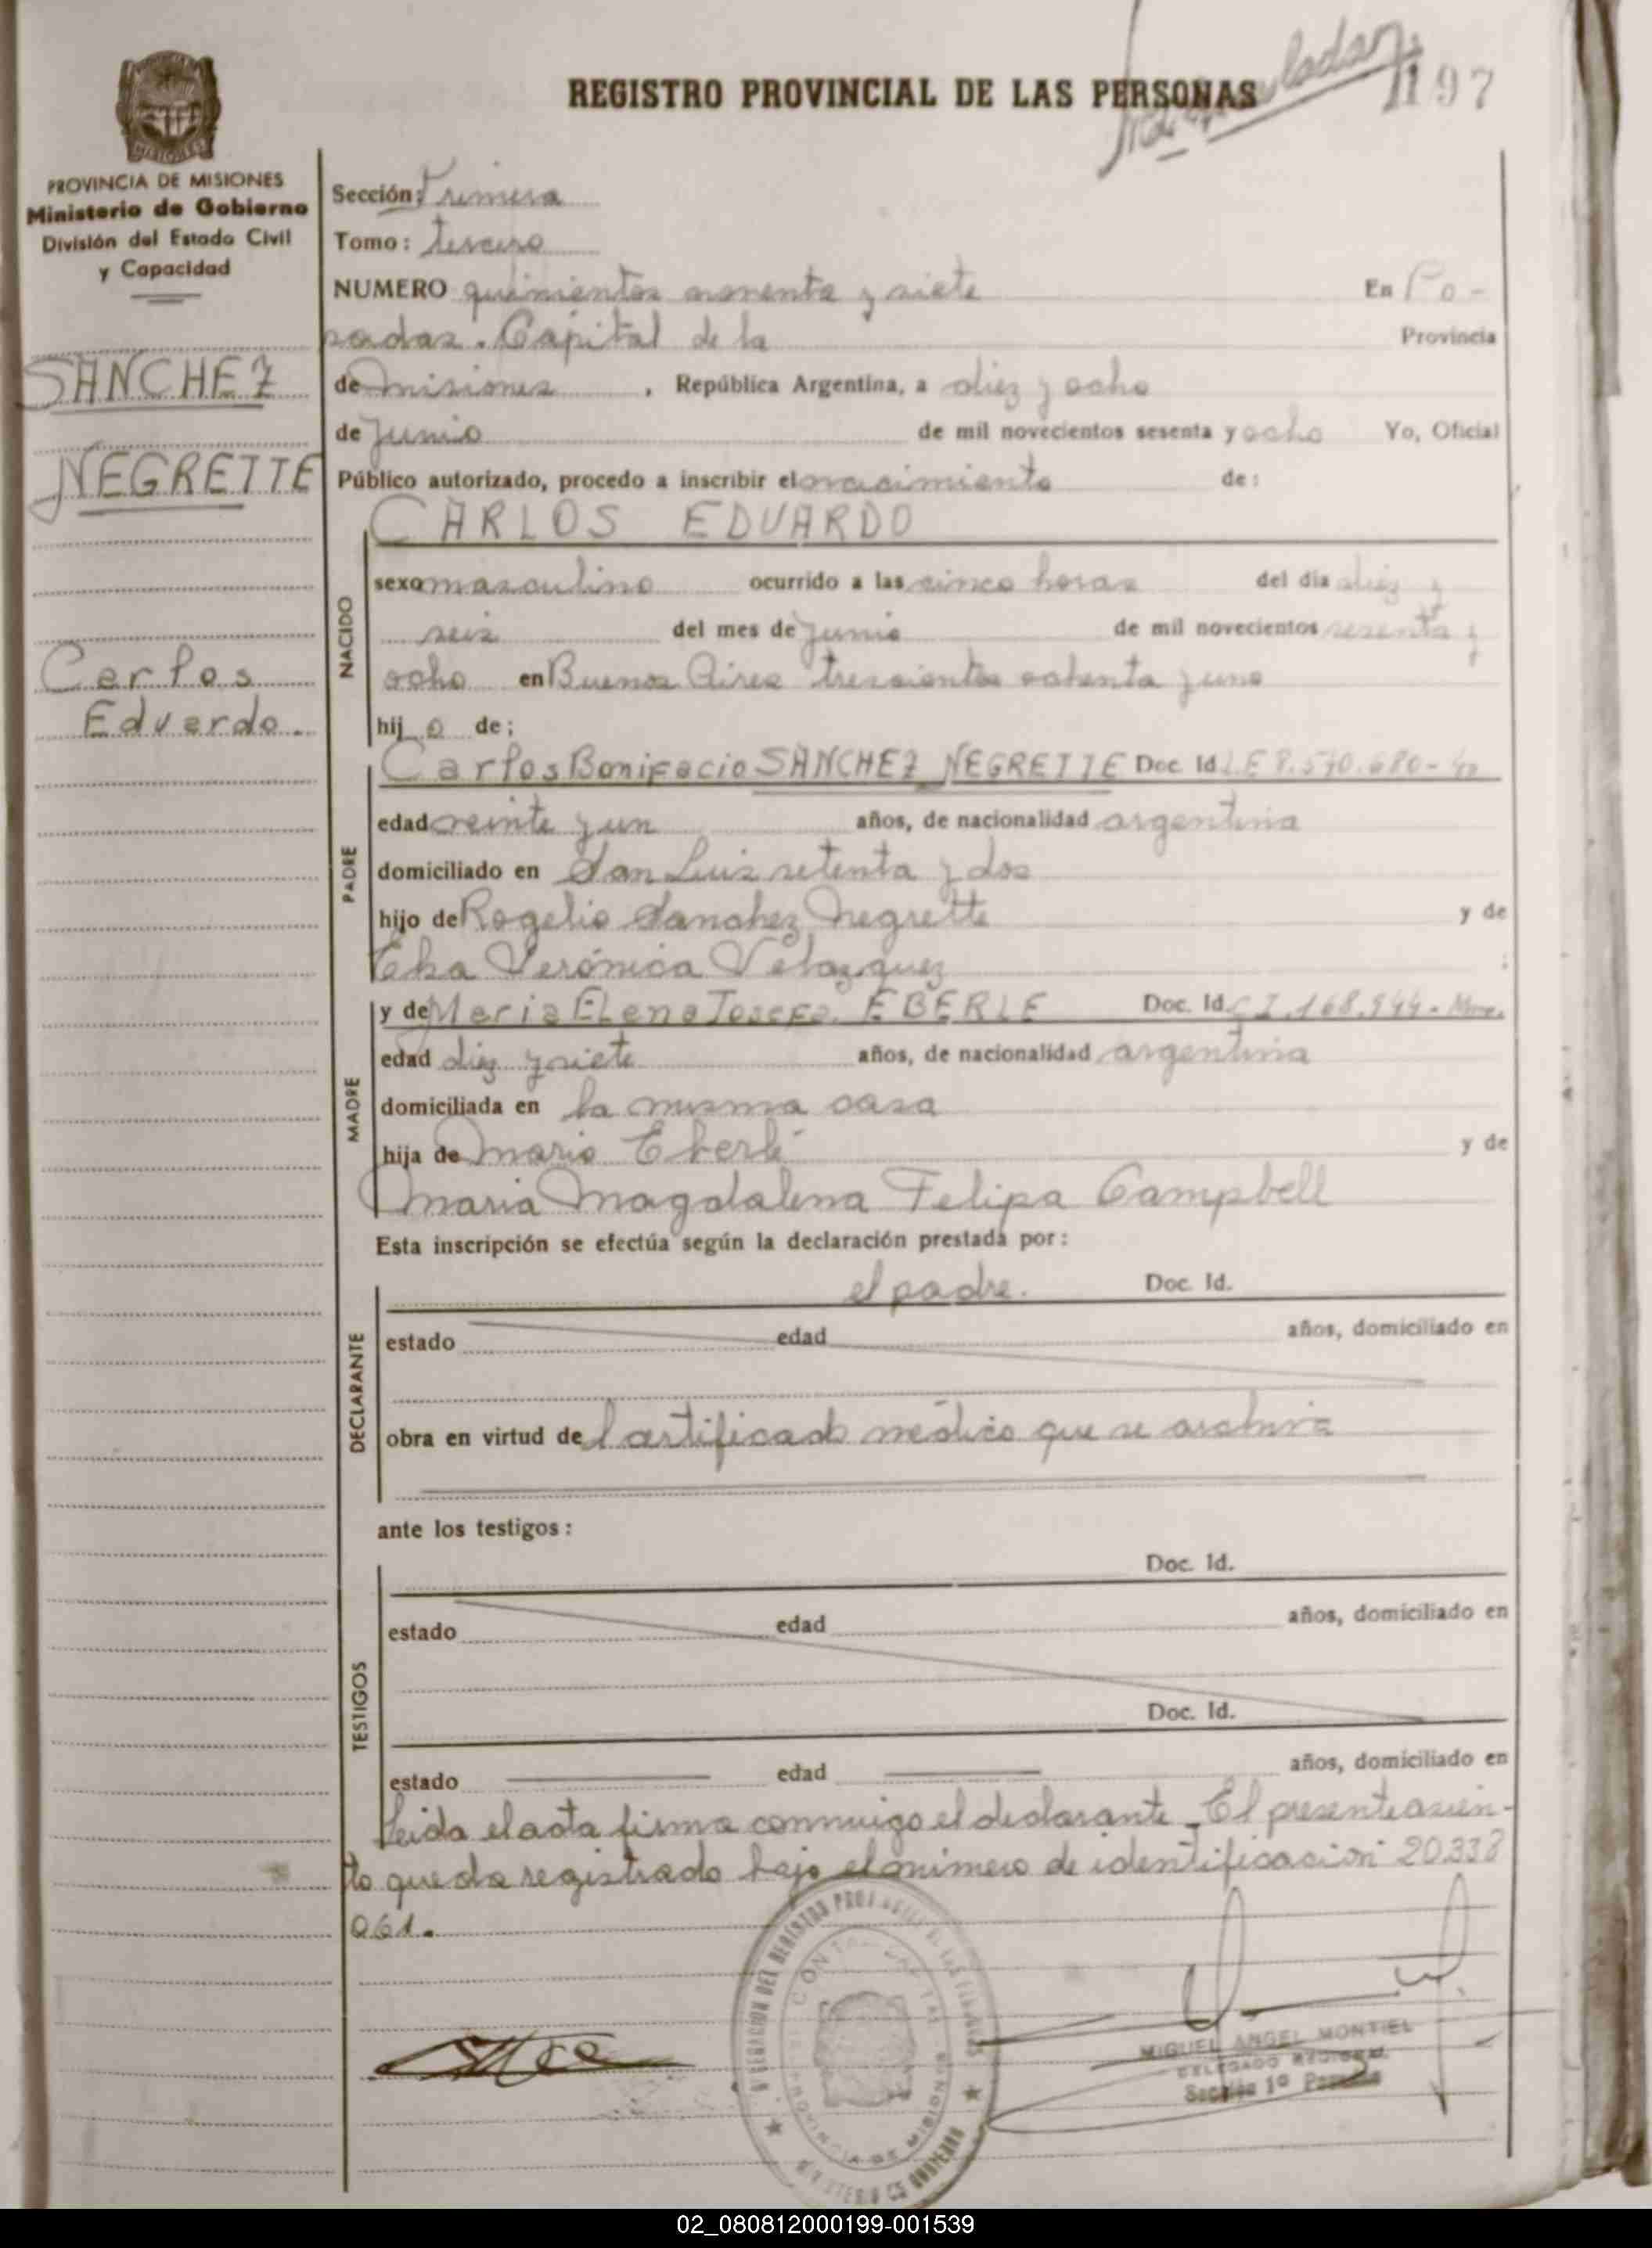 REGISTRO PROVINCIAL DE LAS PERSONAS
197
MISIONES
PROVINCIA DE MISIONES
Ministerio de Gobierno
División del Estado Civil
y Capacidad
SANCHEZ
NEGRETTE
Carlos
Eduardo.
Sección: Primera
Tomo: tercero
NUMERO quinientos noventa y siete En Po-
sadas. Capital de la Provincia
de misiones, República Argentina, a diez y ocho
de Junio de mil novecientos sesenta y ocho Yo, Oficial
Público autorizado, procedo a inscribir el nacimiento de:
CARLOS EDUARDO
NACIDO
sexo masculino ocurrido a las cinco horas del día diez y
seis del mes de Junio de mil novecientos sesenta y
ocho en Buenos Aires trescientos ochenta y uno
hij o de;
PADRE
Carlos Bonifacio SANCHEZ NEGRETTE Doc. Id. L.E 8.570.680-
edad veinte y un años, de nacionalidad argentina
domiciliado en San Luis setenta y dos
hijo de Rogelio Sanchez Negrette y de
Verónica Velazquez
MADRE
y de Maria Elena Josefa EBERLE Doc. Id. C I. 168.944- Mnes.
edad diez y siete años, de nacionalidad argentina
domiciliada en la misma casa
hija de Mario Eberlé y de
Maria Magdalena Felipa Campbell
Esta inscripción se efectúa según la declaración prestada por:
DECLARANTE
el padre. Doc. Id.
estado edad años, domiciliado en
obra en virtud del certificado médico que se archiva
ante los testigos:
TESTIGOS
Doc. Id.
estado edad años, domiciliado en
Doc. Id.
estado edad años, domiciliado en
Leida el acta firma conmigo el declarante _ El presente asien-
to queda registrado bajo el número de identificación 20.338
061.
DIRECCION DEL REGISTRO PROVINCIAL DE LAS PERSONAS
PROVINCIA DE MISIONES
MINISTERIO DE GOBIERNO
MIGUEL ANGEL MONTIEL
DELEGADO REGIONAL
Sección 1ª Posadas
02_080812000199-001539